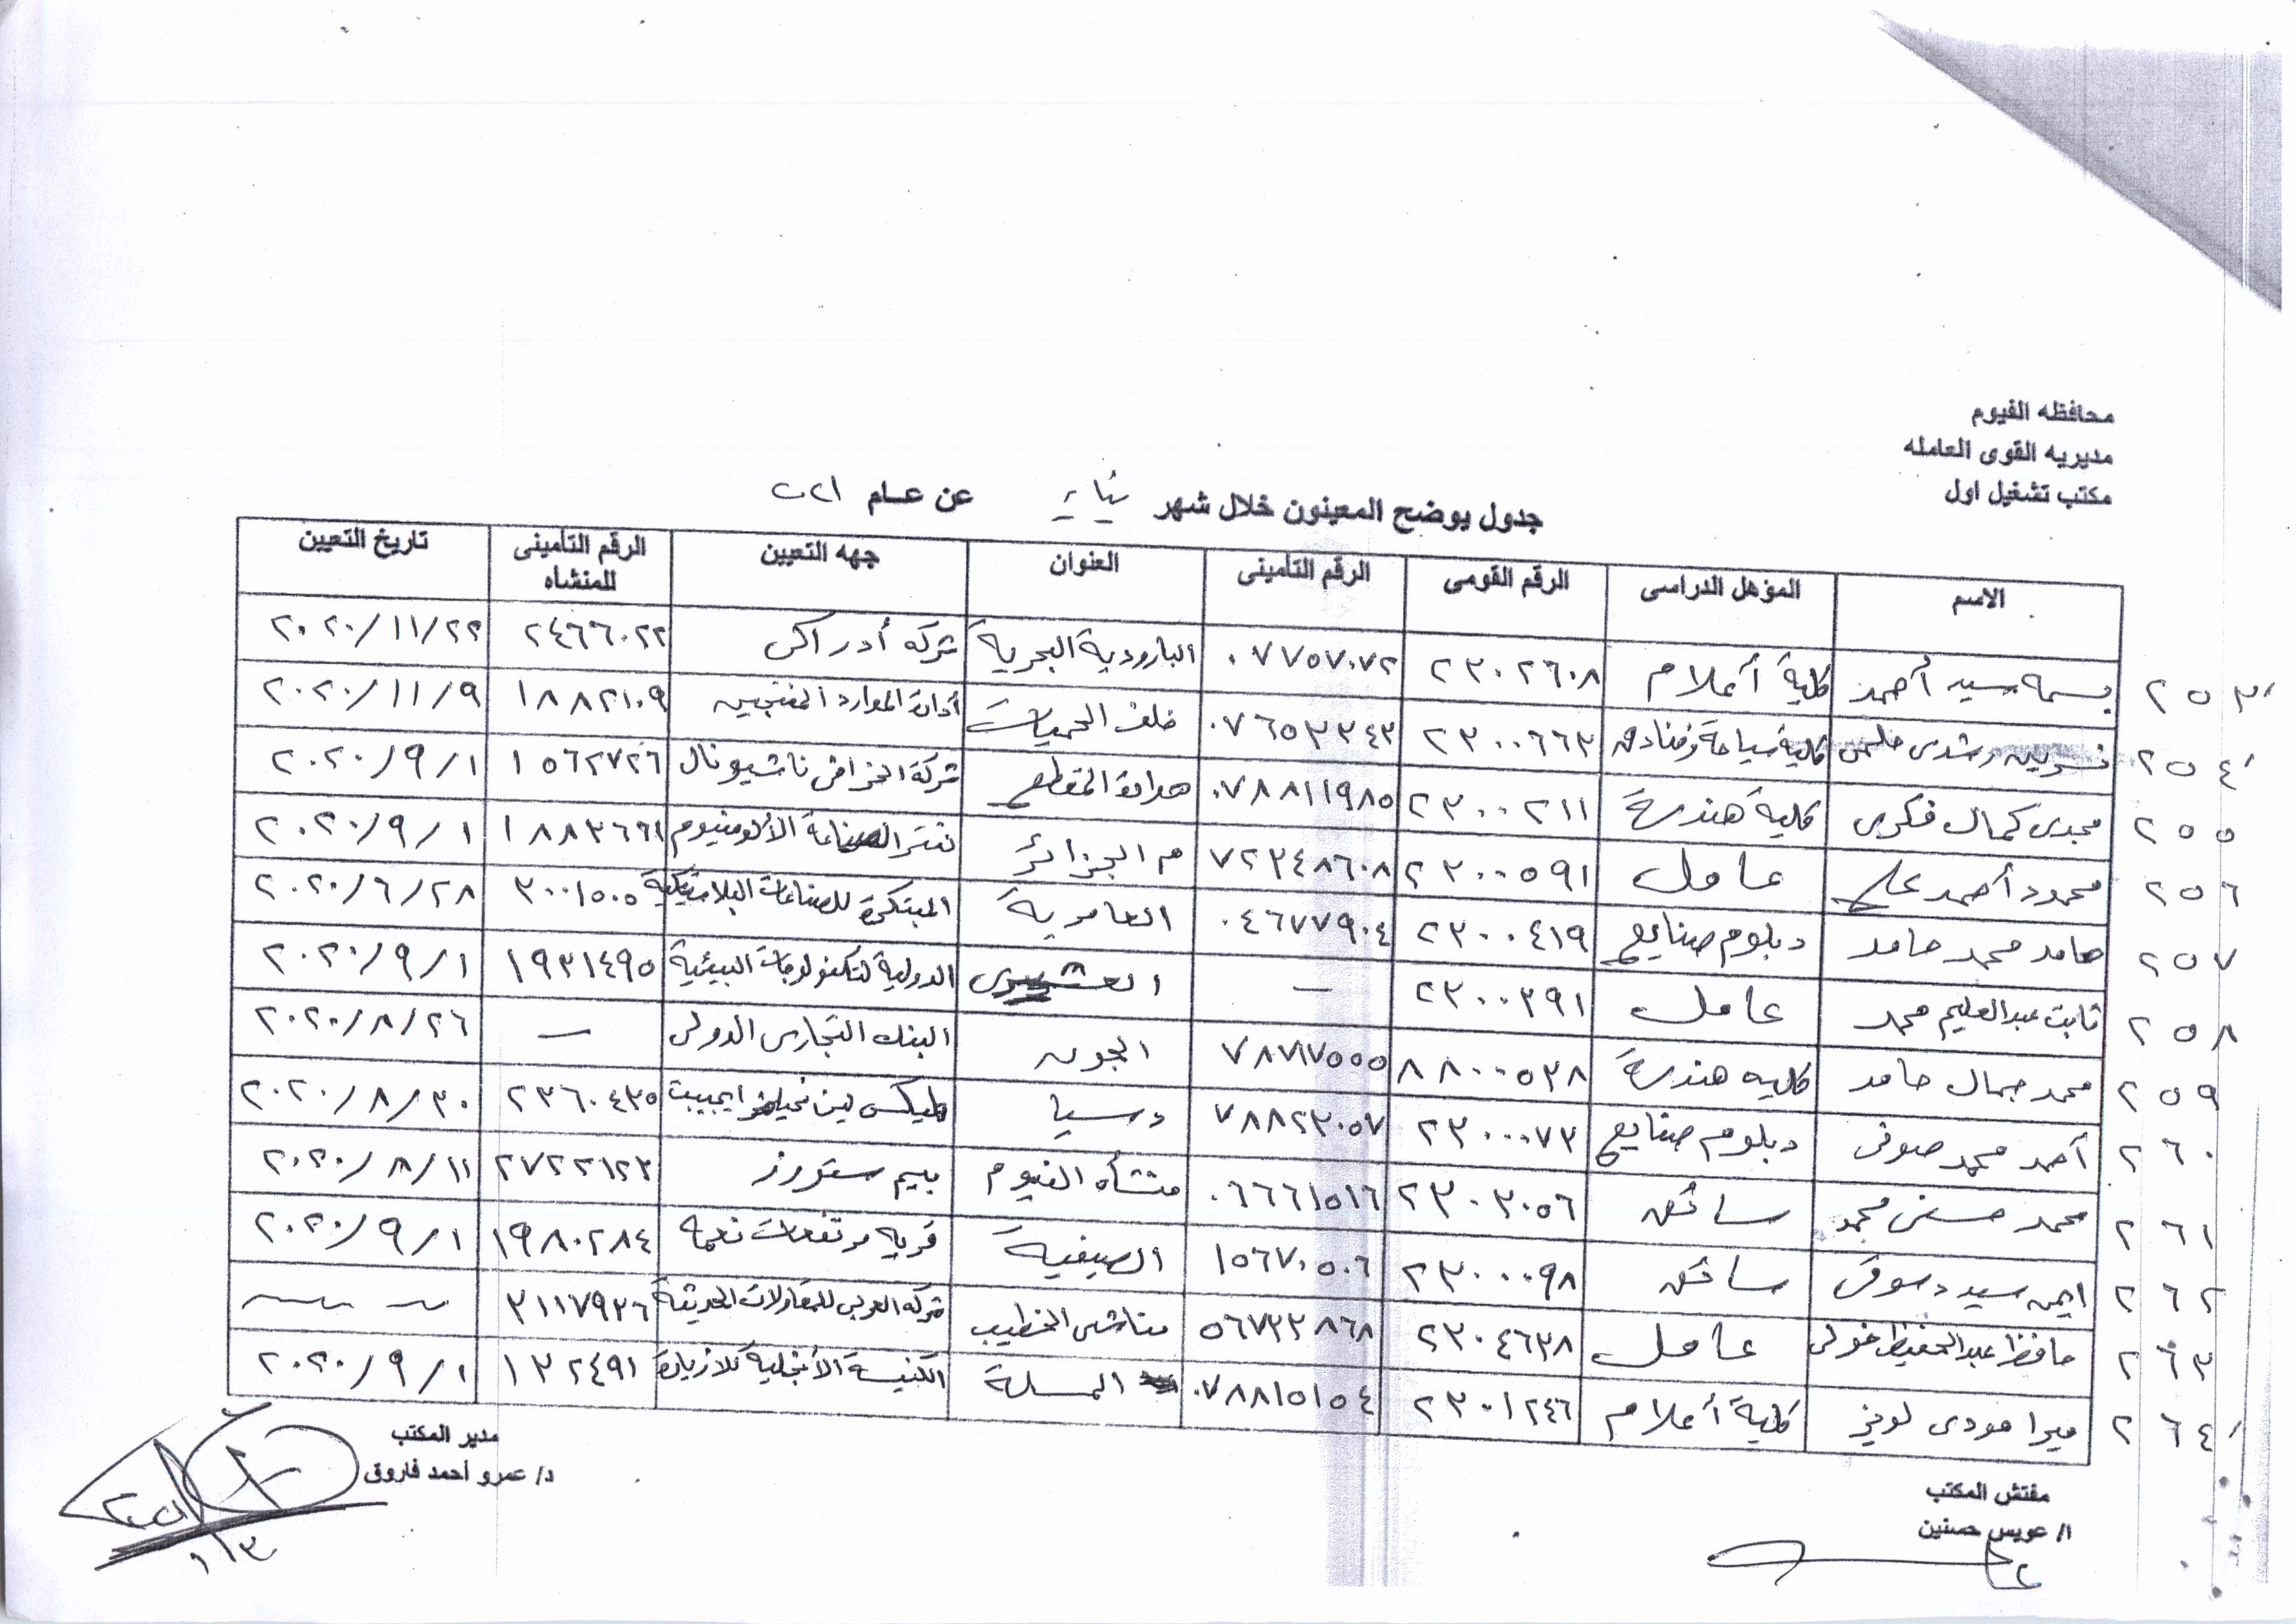 محافظه الفيوم
مديريه القوى العامله
مكتب تشغيل اول
جدول يوضح المعينون خلال شهر يناير عن عام ٢٠٢١
الاسم المؤهل الدراسى الرقم القومى الرقم التأمينى العنوان جهه التعيين الرقم التأمينى للمنشاه تاريخ التعيين
٢٥٣ بسمه سيد أحمد كلية أعلام ٢٣٠٢٦٠٨ ٠٧٧٥٧٠٧٢ البارودية البحرية شركه أدراكس ٢٤٦٦٠٢٢ ٢٠٢٠/١١/٢٢
٢٥٤ نسرين رشدى حلمى كلية سياحة وفنادق ٢٣٠٠٦٦٣ ٠٧٦٥٣٣٤٣ خلف الحميات أدارة الموارد المنتجين ١٨٨٢١٠٩ ٢٠٢٠/١١/٩
٢٥٥ مجدى كمال فكرى كلية هندسة ٢٣٠٠٢١١ ٠٧٨٨١١٩٨٥ هوارة المقطع شركة الخرافى ناشيونال ١٥٦٢٧٢٦ ٢٠٢٠/٩/١
٢٥٦ محمود أحمد على عامل ٢٣٠٠٥٩١ ٧٢٣٤٨٦٠٨ م الجزائر سنتر لصناعة الألومنيوم ١٨٨٣٦٦١ ٢٠٢٠/٩/١
٢٥٧ حامد محمد حامد دبلوم صنايع ٢٣٠٠٤١٩ ٠٤٦٧٧٩٠٤ العامرية المبتكرة للصناعات البلاستيكية ٣٠٠١٥٠٥ ٢٠٢٠/٦/٢٨
٢٥٨ ثابت عبدالعليم محمد عامل ٢٣٠٠٣٩١ – العشيرى الدولية لتكنولوجيات البيئية ١٩٣١٤٩٥ ٢٠٢٠/٩/١
٢٥٩ محمد جمال حامد كليه هندسة ٨٨٠٠٥٣٨ ٧٨٧١٧٥٥٥ الجون البنك التجارى الدولى – ٢٠٢٠/٨/٢٦
٢٦٠ أحمد محمد صوفى دبلوم صنايع ٢٣٠٠٠٧٣ ٧٨٨٢٣٠٥٧ دسيا ايجيبت ٢٣٦٠٤٣٥ ٢٠٢٠/٨/٣٠
٢٦١ محمد حسنى محمد سائق ٢٣٠٣٠٥٦ ٠٦٦٦١٥١٦ منشأه الفيوم بيم ستورز ٢٧٢٢١٢٣ ٢٠٢٠/٨/١١
٢٦٢ ايمن سيد دسوقى سائق ٢٣٠٠٠٩٨ ١٥٦٧٠٥٠٦ الصيفية قريه مرتفعات نعمه ١٩٨٠٢٨٤ ٢٠٢٠/٩/١
٢٦٣ حافظ عبدالحفيظ خولى عامل ٢٣٠٤٦٣٨ ٥٦٧٣٣٨٦٨ مناشى الخطيب شركه العربى للمقاولات الحديثة ٣١١٧٩٣٦ –
٢٦٤ ميرا مودى لويز كلية أعلام ٢٣٠١٢٤٦ ٠٧٨٨١٥١٥٤ المسلة الكنيسة الأنجلية ١٣٢٤٩١ ٢٠٢٠/٩/١
مفتش المكتب
ا/ عويس حسنين
مدير المكتب
د/ عمرو أحمد فاروق